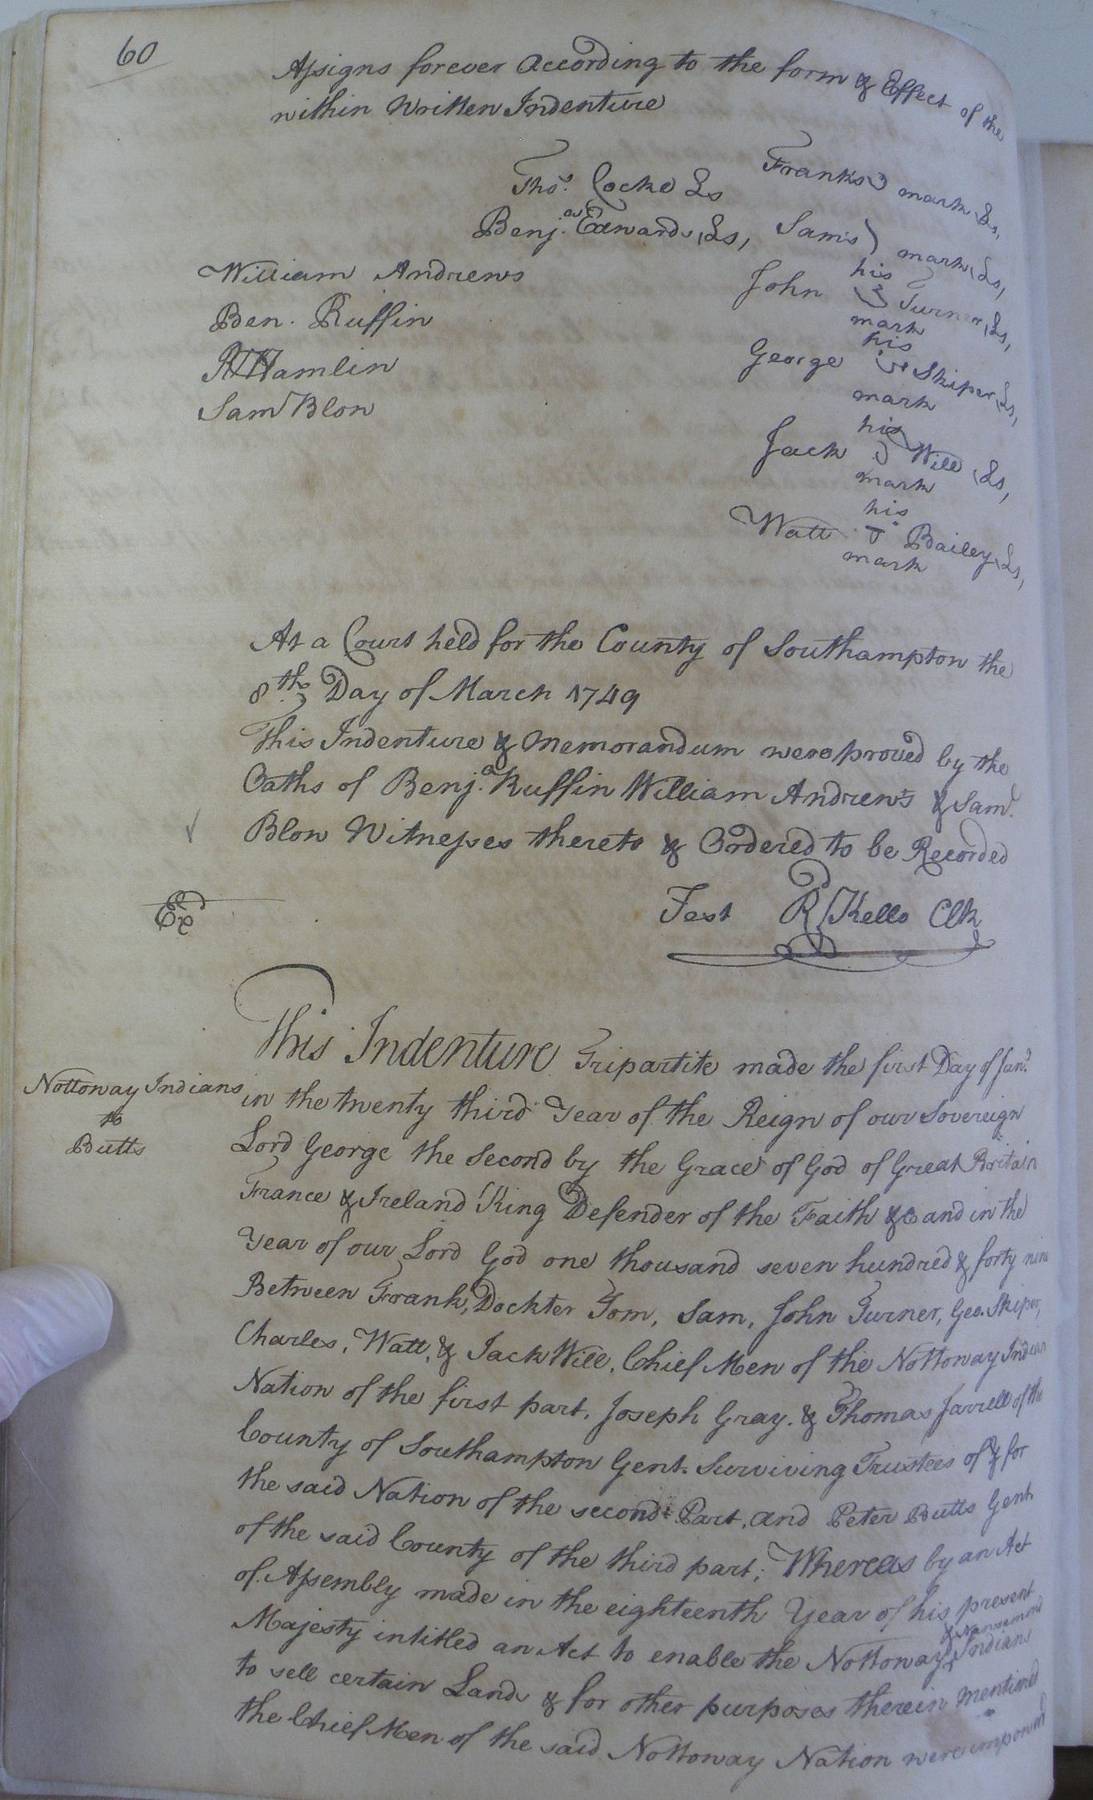 60
Assigns forever According to the form & Effect of the
within Written Indenture
Franks mark Ls,
Thos. Cocke Ls
Benja. Edwards, Ls, Sam's mark, Ls,
William Andrews
his
John Turner, Ls,
mark
Ben. Ruffin
his
George Skiper, Ls,
mark
R Hamlin
Saml Blow
his
Jack Will Ls,
mark
his
Watt Bailey, Ls,
mark
At a Court held for the County of Southampton the
8th Day of March 1749
This Indenture & Memorandum were proved by the
Oaths of Benja. Ruffin William Andrews & Saml.
Blow Witnesses thereto & Ordered to be Recorded
Ex
Test R Kello Clk
This Indenture Tripartite made the first Day of Janr.
Nottoway Indians
to
Butts
in the twenty third Year of the Reign of our Sovereign
Lord George the Second by the Grace of God of Great Britain
France & Ireland King Defender of the Faith &c and in the
Year of our Lord God one thousand seven hundred & forty nine
Between Frank, Dockter Tom, Sam, John Turner, Geo. Skiper,
Charles, Watt, & Jack Will, Chief Men of the Nottoway Indian
Nation of the first part, Joseph Gray. & Thomas Jarrell of the
County of Southampton Gent. Surviving Trustees of & for
the said Nation of the second Part, and Peter Butts Gent.
of the said County of the third part; Whereas by an Act
of Assembly made in the eighteenth Year of his present
Majesty intitled an Act to enable the Nottoway & Nansemond Indians
to sell certain Lands & for other purposes therein Mentioned
the Chief Men of the said Nottoway Nation were impowrd